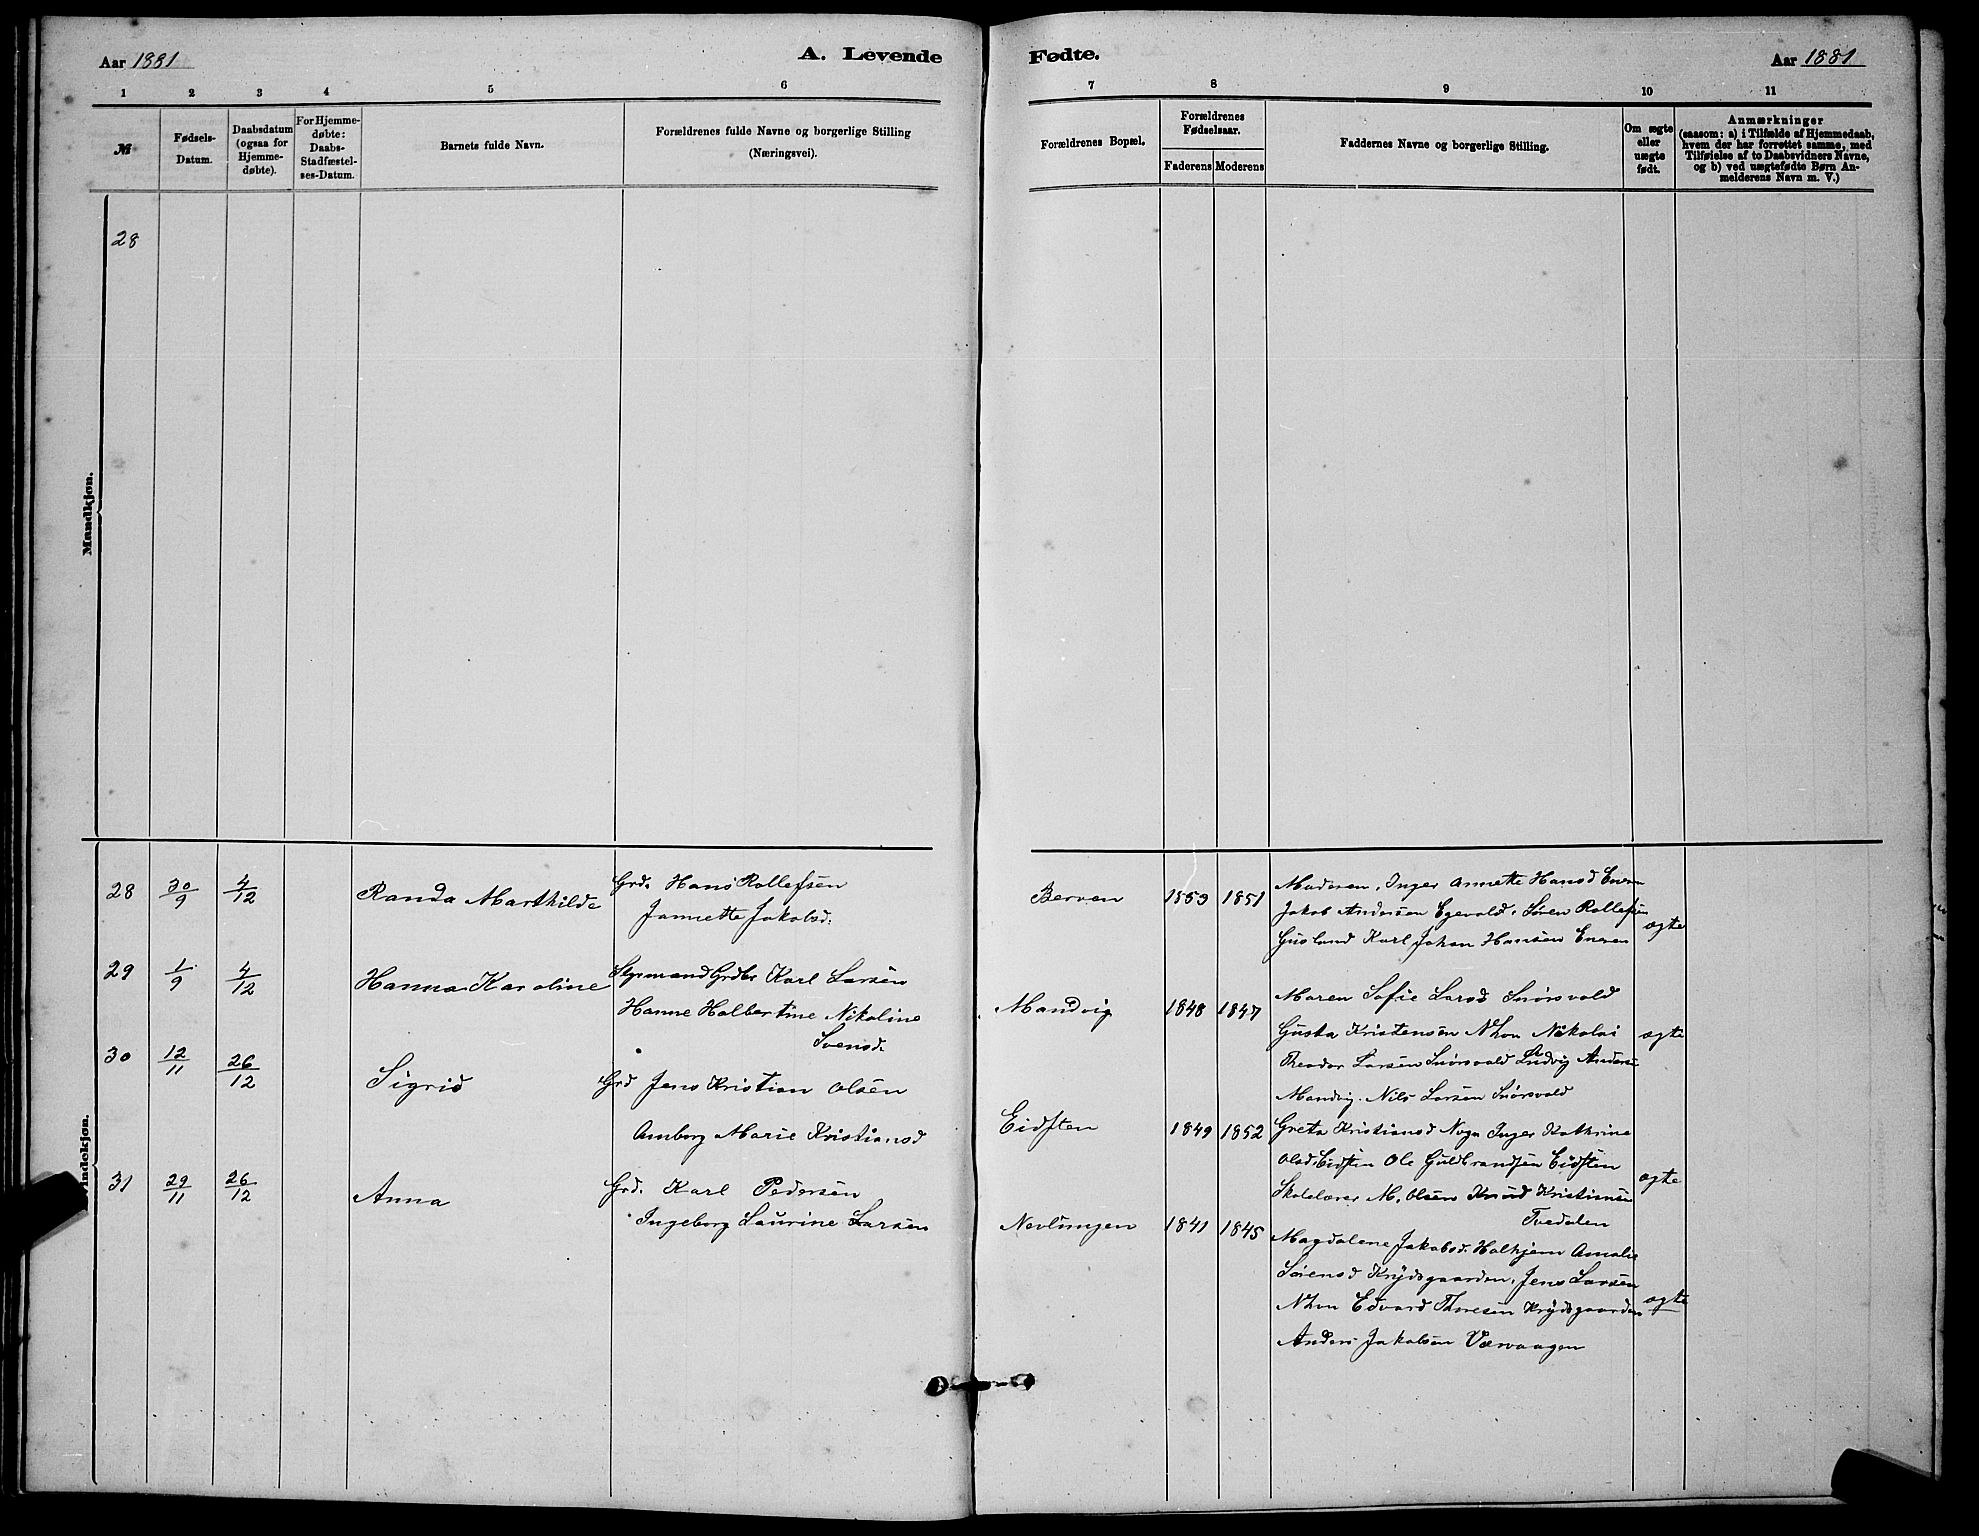 Aar 1881
A. Levende
1 2 3 4 5 6
№
Fødsels-
Datum.
Daabsdatum
(ogsaa for
Hjemme-
døbte).
For Hjemme-
døbte:
Daabs-
Stadfæstel-
ses-Datum.
Barnets fulde Navn.
Forældrenes fulde Navne og borgerlige Stilling
(Næringsvei).
Mandkjøn.
28
28 30/9 4/12 Randa Marthilde
Grd. Hans Rollefsen
Jannette Jakobsd.
29 1/9 4/12 Hanna Karoline
Karl Larsen
Hanne Halbertine Nikoline
Svensd.
30 12/11 26/12 Sigrid
Grd Jens Kristian Olsen
Amborg Marie Kristiansd
Kvindekjøn.
31 29/11 26/12 Anna
Grd. Karl Pedersen
Ingeborg Laurine Larsen
Fødte.
Aar 1881
7 8 9 10 11
Forældrenes Bopæl.
Forældrenes
Fødselsaar.
Faderens Moderens
Faddernes Navne og borgerlige Stilling.
Om ægte
eller
uægte
født.
Anmærkninger
(saasom: a) i Tilfælde af Hjemmedaab,
hvem der har forrettet samme, med
Tilføielse af to Daabsvidners Navne,
og b) ved uægtefødte Børn An-
melderens Navn m. V.)
Berven 1853 1851
Moderen, Inger Annette Hansd
Jakob Andersen Søren Rollefsen
Gusland Karl Johan Hansen
ægte
Mandvig 1848 1847
Maren Sofie Larsd Snørsvold
Gusta Kristensen Nhvn Nikolai
Theodor Larsen Snørsvold Ludvig Anders
Mandvig. Nils Larsen Snørsvold
ægte
Eidsten 1849 1852
Greta Kristiansd Inger Kathrine
Olsd. Eidsten Ole Guldbrandsen Eidsten
Skolelærer M. Olsen Knud Kristiansen
Tvedalen
ægte
Nevlungen 1841 1845
Magdalene Jakobsd. Halhjem Amalie
Sørensd Krydsgaarden, Jens Larsen
Nhvn Edvard Thoresen Krydsgaarden
Anders Jakobsen Værvaagen
ægte